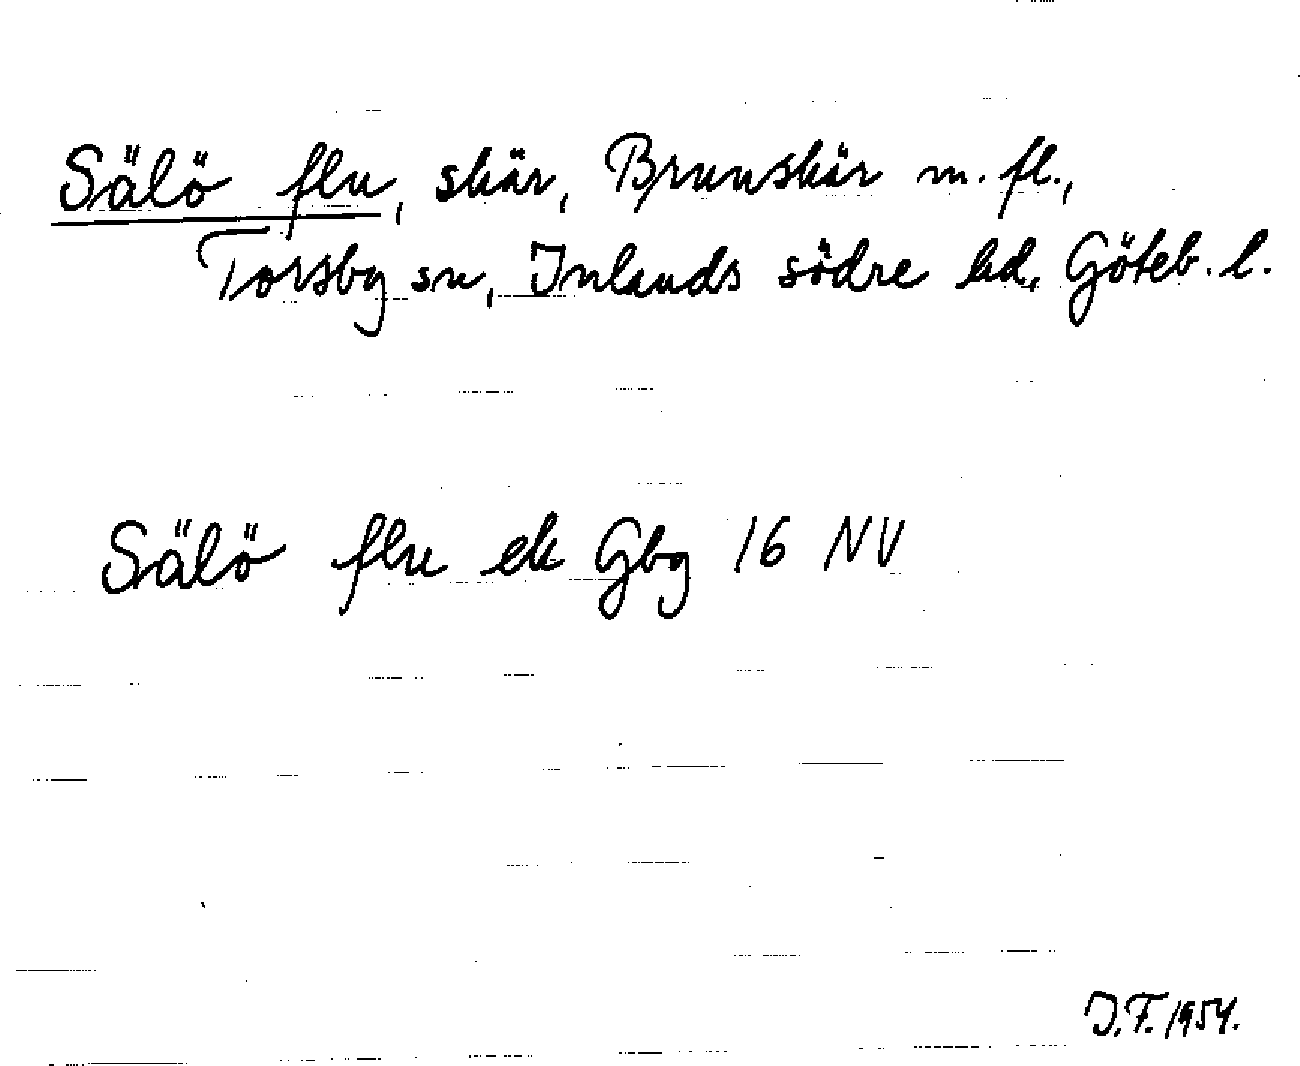 Sälö flu, skär, Brunskär m. fl.,
Torsby sn, Inlands södre hd, Göteb. l.
Sälö flu ek Gbg 16 NV
J.F. 1954.